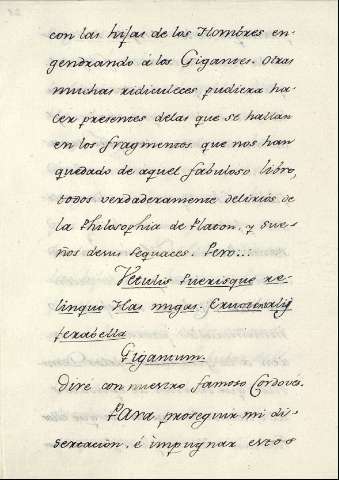 con las hijas de los Hombres en-
gendrando á los Gigantes. Otras
muchas ridiculeces pudiera ha-
cer presentes delas que se hallan
en los fragmentos que nos han
quedado de aquel fabuloso libro,
todos verdaderamente delirios de
la Philosophia de Platon, y Sue-
ños desus sequaces. Pero...
Vetulis Puerisque re-
linquo Has nugas.
Gigantum.
diré con nuestro famoso Cordovés.
Para proseguir mi di-
sertacion, é impugnar estos